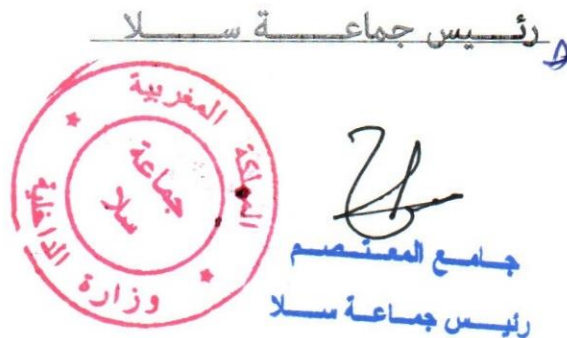 رئيس جماعة سلا
المملكة المغربية
وزارة الداخلية
جماعة
سلا
جامع المعتصم
رئيس جماعة سلا